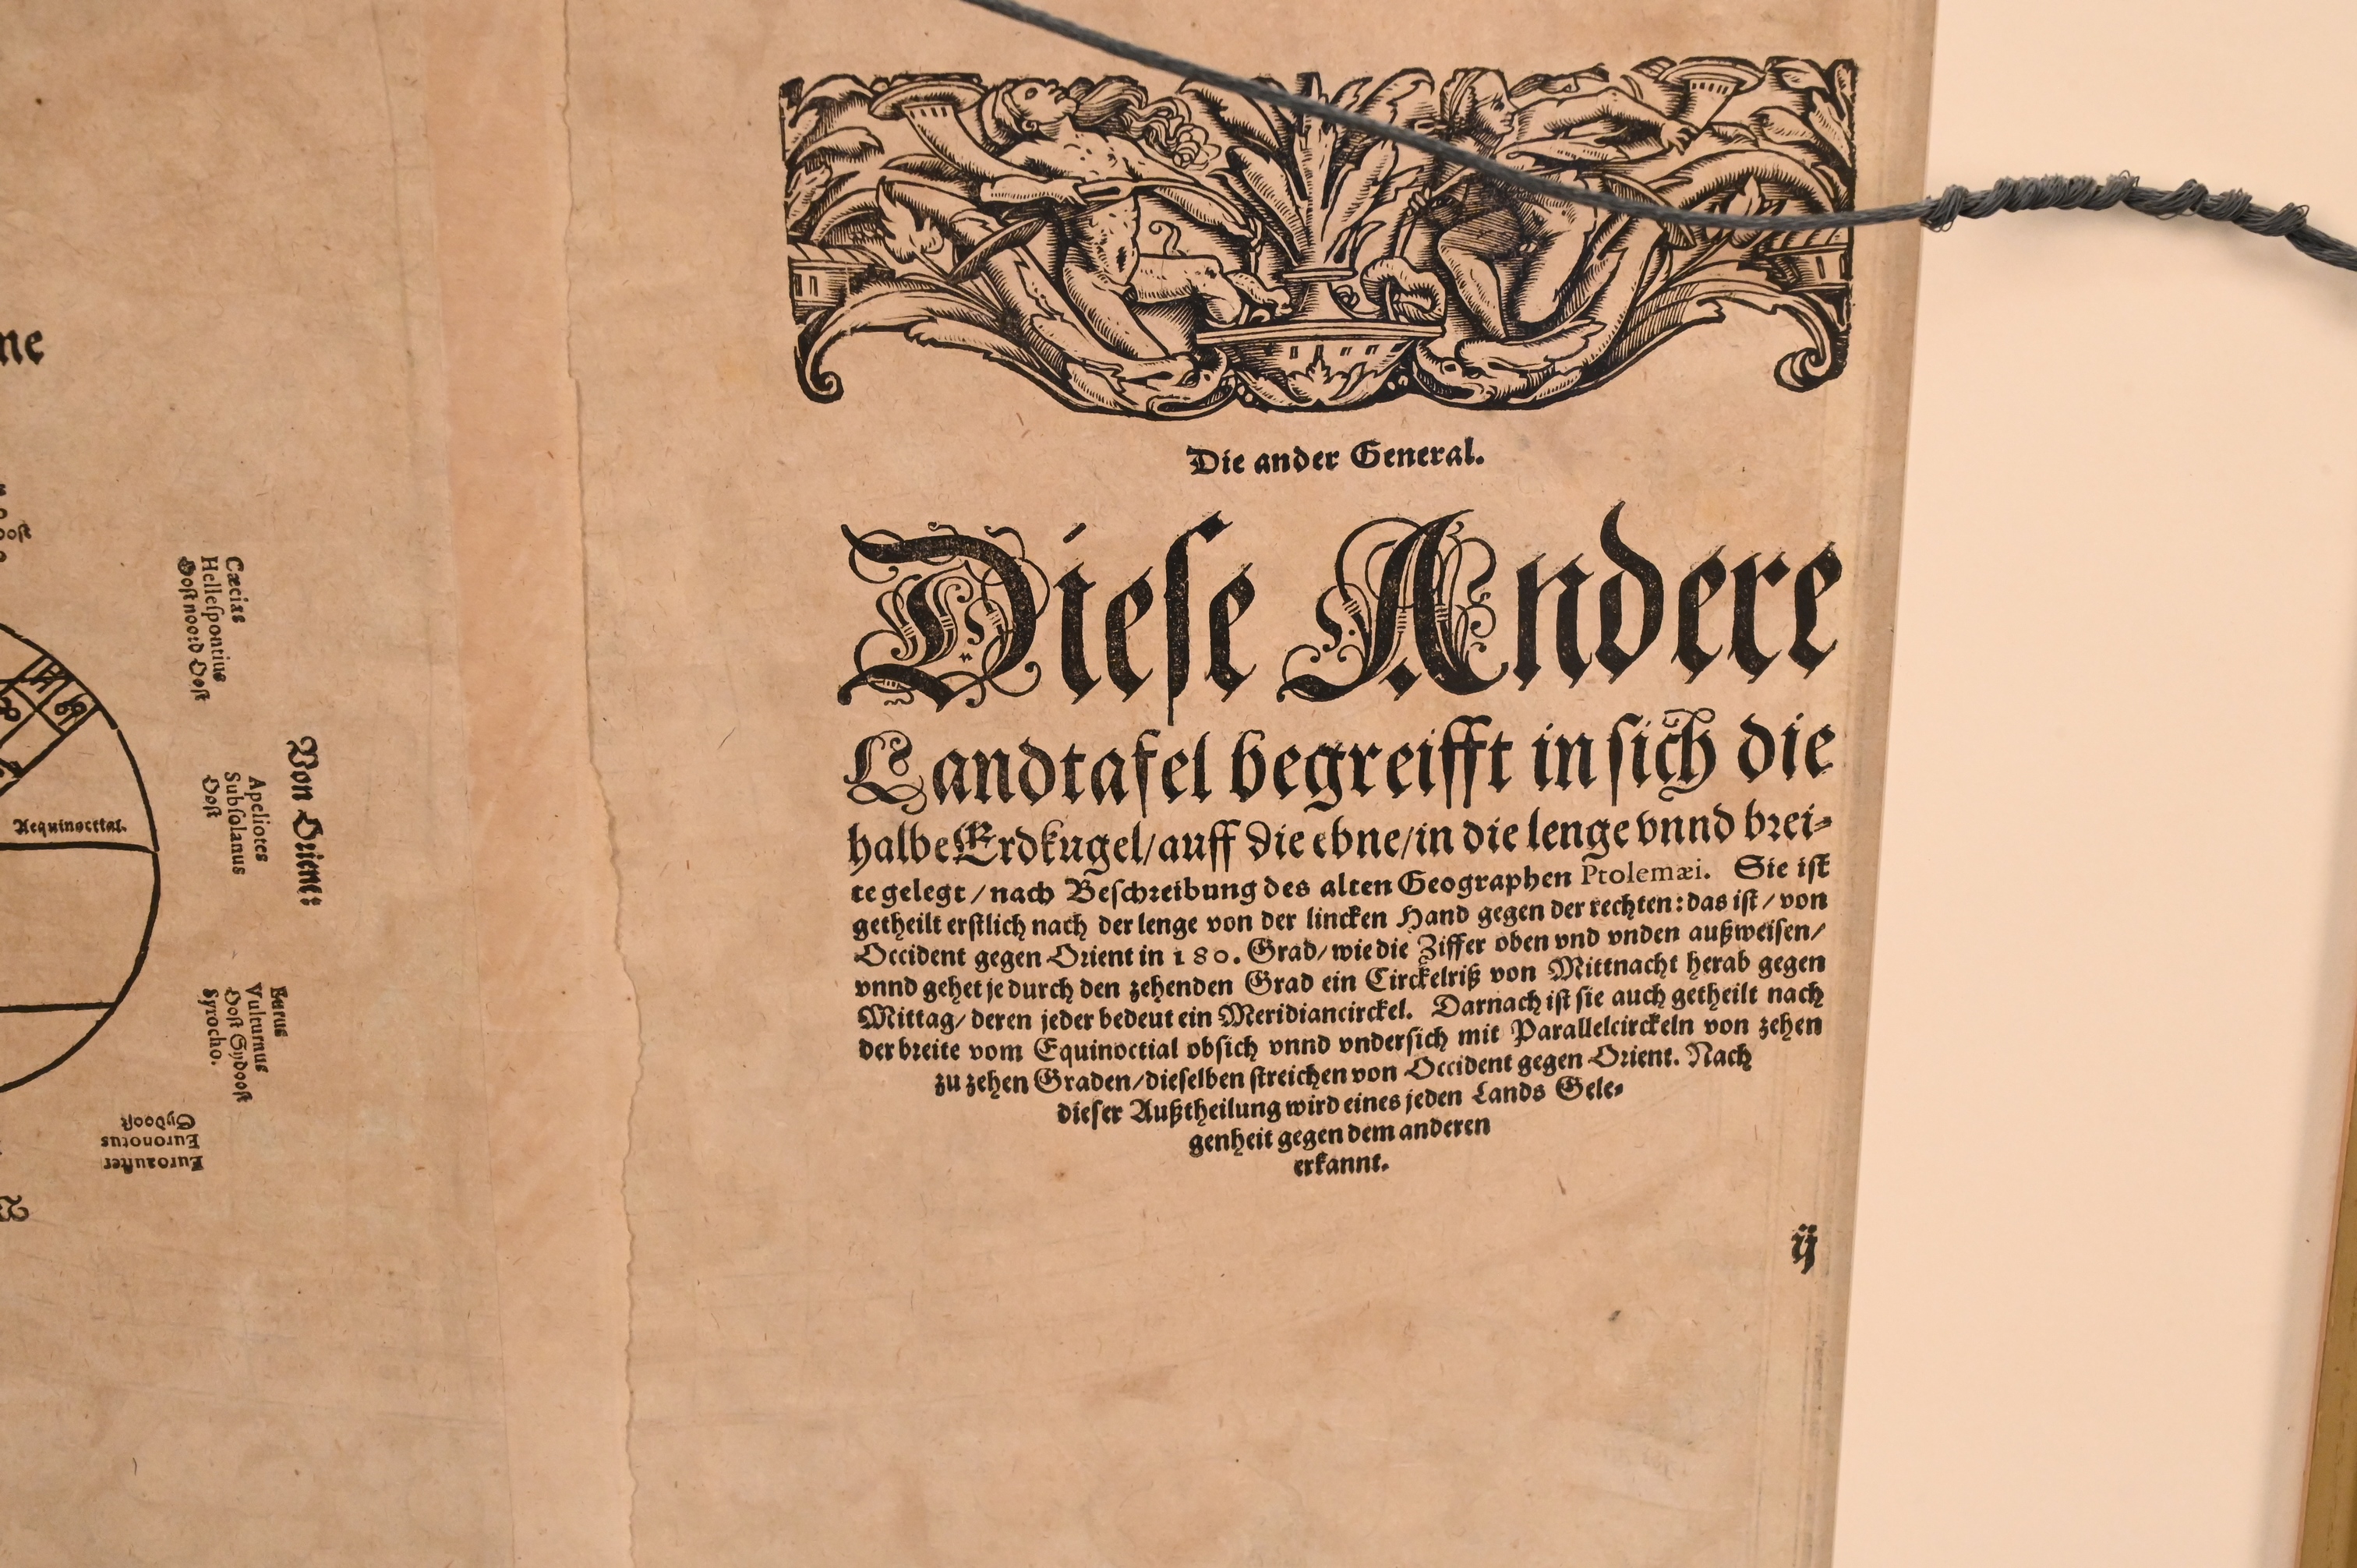 ne
Cæcias
Helleſpontius
Ooſtnoord Ooſt
Von Orient:
Apeliotes
Subſolanus
Ooſt
Aequinoctial.
Eurus
Vulturnus
Ooſt Sydooſt
Syrocho.
Euroauſter
Euronotus
Sydooſt
Die ander General.
Dieſe Andere
Landtafel begreifft in ſich die
halbe Erdkugel/auff die ebne/in die lenge vnnd brei⸗
te gelegt/nach Beſchreibung des alten Geographen Ptolemæi. Sie iſt
getheilt erſtlich nach der lenge von der lincken Hand gegen der rechten: das iſt/von
Occident gegen Orient in 180. Grad/wie die Ziffer oben vnd vnden außweiſen/
vnnd gehet je durch den zehenden Grad ein Circkelriß von Mittnacht herab gegen
Mittag/deren jeder bedeut ein Meridiancirckel. Darnach iſt ſie auch getheilt nach
der breite vom Equinoctial obſich vnnd vnderſich mit Parallelcirckeln von zehen
zu zehen Graden/dieſelben ſtreichen von Occident gegen Orient. Nach
dieſer Außtheilung wird eines jeden Lands Gele⸗
genheit gegen dem anderen
erkannt.
ij